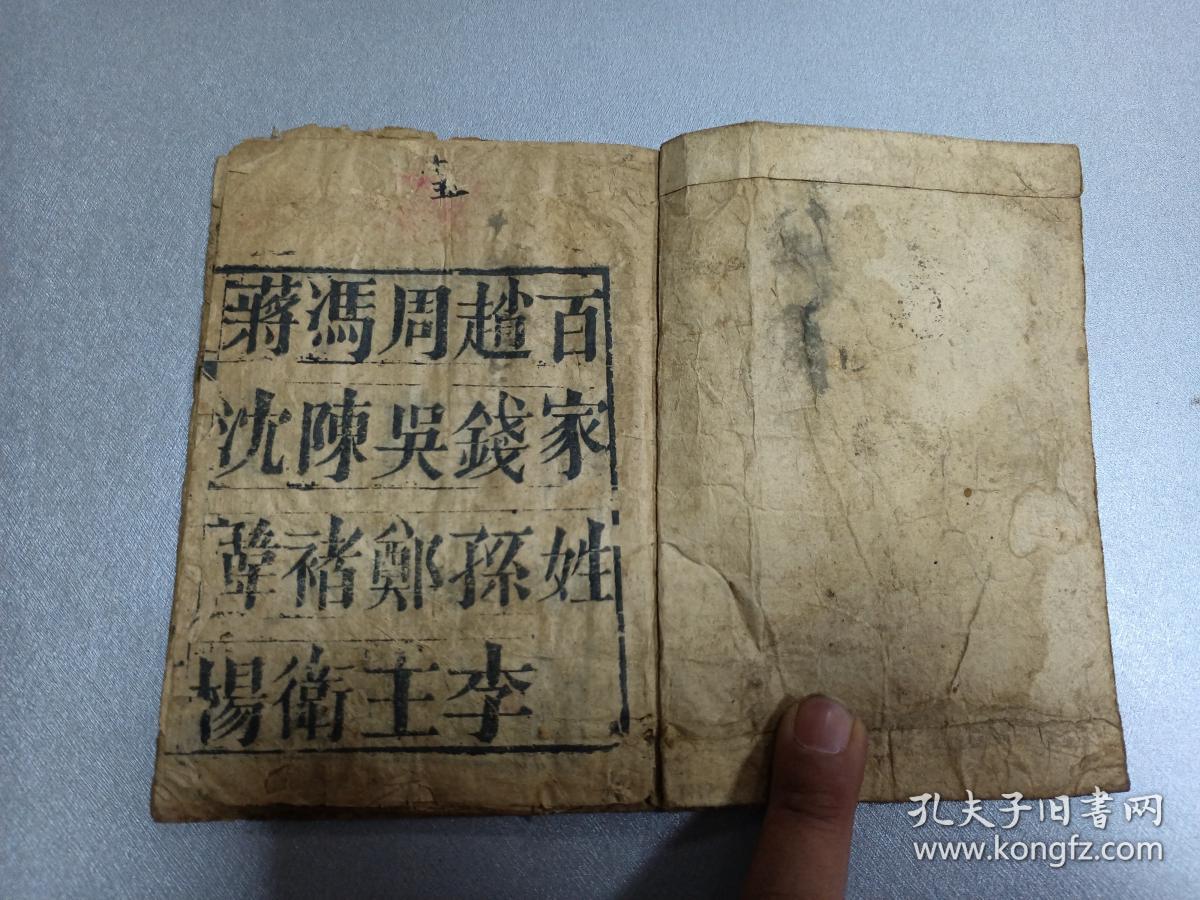 百家姓
趙錢孫李
周吳鄭王
馮陳褚衛
蔣沈韓楊
孔夫子旧书网
www.kongfz.com